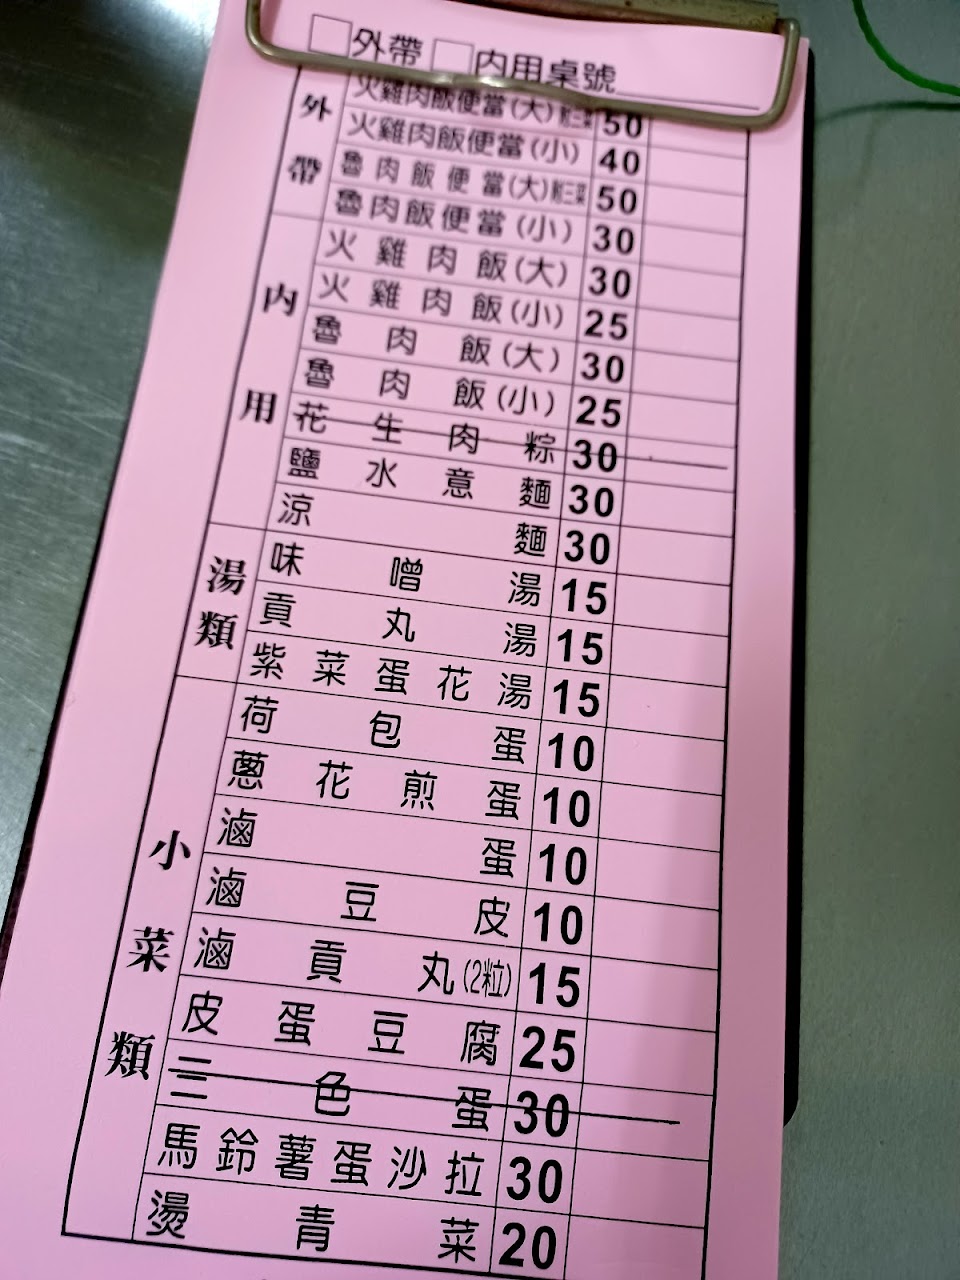 □外帶 □內用桌號
外帶
火雞肉飯便當(大)附三菜 50
火雞肉飯便當(小) 40
魯肉飯便當(大)附三菜 50
魯肉飯便當(小) 30
內用
火雞肉飯(大) 30
火雞肉飯(小) 25
魯肉飯(大) 30
魯肉飯(小) 25
花生肉粽 30
鹽水意麵 30
涼麵 30
湯類
味噌湯 15
貢丸湯 15
紫菜蛋花湯 15
小菜類
荷包蛋 10
蔥花煎蛋 10
滷蛋 10
滷豆皮 10
滷貢丸(2粒) 15
皮蛋豆腐 25
三色蛋 30
馬鈴薯蛋沙拉 30
燙青菜 20